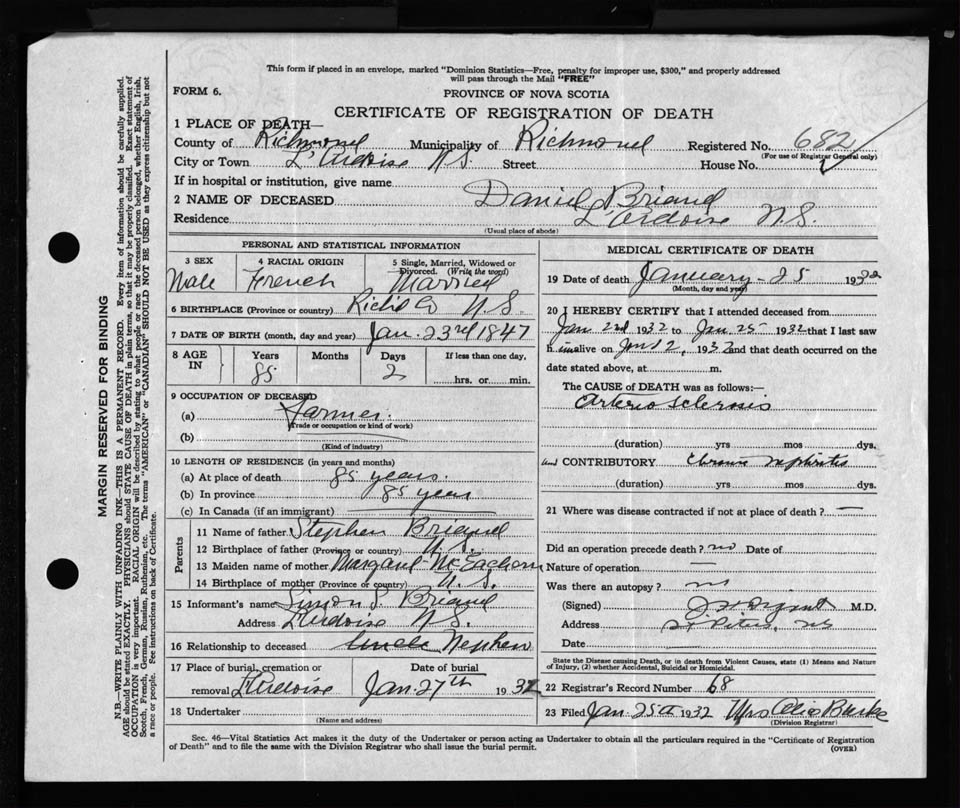 This form if placed in an envelope, marked "Dominion Statistics—Free, penalty for improper use, $300," and properly addressed
will pass through the Mail "FREE"
FORM 6.
PROVINCE OF NOVA SCOTIA
CERTIFICATE OF REGISTRATION OF DEATH
1 PLACE OF DEATH—
County of Richmond Municipality of Richmond Registered No. 682
(For use of Registrar General only)
City or Town L'Ardoise N.S. Street House No.
If in hospital or institution, give name
2 NAME OF DECEASED Daniel Briand
Residence L'Ardoise N.S.
(Usual place of abode)
PERSONAL AND STATISTICAL INFORMATION
3 SEX
Male
4 RACIAL ORIGIN
French
5 Single, Married, Widowed or
Divorced. (Write the word)
Married
6 BIRTHPLACE (Province or country) Rich'd Co N.S.
7 DATE OF BIRTH (month, day and year) Jan. 23rd 1847
8 AGE IN
Years Months Days If less than one day,
85 2 hrs. or min.
9 OCCUPATION OF DECEASED
(a) Farmer
(Trade or occupation or kind of work)
(b)
(Kind of industry)
10 LENGTH OF RESIDENCE (in years and months)
(a) At place of death 85 years
(b) In province 85 years
(c) In Canada (if an immigrant)
Parents
11 Name of father Stephen Briand
12 Birthplace of father (Province or country) N.S.
13 Maiden name of mother Margaret McEachern
14 Birthplace of mother (Province or country) N.S.
15 Informant's name Simon S. Briand
Address L'Ardoise N.S.
16 Relationship to deceased Uncle Nephew
17 Place of burial, cremation or Date of burial
removal L'Ardoise Jan. 27th 1932
18 Undertaker
(Name and address)
MEDICAL CERTIFICATE OF DEATH
19 Date of death January - 25 1932
(Month, day and year)
20 I HEREBY CERTIFY that I attended deceased from
Jan 22d 1932 to Jan 25 1932 that I last saw
h im alive on Jan 12, 1932 and that death occurred on the
date stated above, at m.
The CAUSE of DEATH was as follows:—
Arteriosclerosis
(duration) yrs mos dys.
and CONTRIBUTORY Chronic nephritis
(duration) yrs mos dys.
21 Where was disease contracted if not at place of death? —
Did an operation precede death? no Date of
Nature of operation —
Was there an autopsy? no
(Signed) M.D.
Address St Peters, NS
Date
State the Disease causing Death, or in death from Violent Causes, state (1) Means and Nature
of Injury, (2) whether Accidental, Suicidal or Homicidal.
22 Registrar's Record Number 68
23 Filed Jan. 25th 1932 Mrs Burke
(Division Registrar)
Sec. 46—Vital Statistics Act makes it the duty of the Undertaker or person acting as Undertaker to obtain all the particulars required in the "Certificate of Registration
of Death" and to file the same with the Division Registrar who shall issue the burial permit.
(OVER)
MARGIN RESERVED FOR BINDING
N.B.—WRITE PLAINLY WITH UNFADING INK—THIS IS A PERMANENT RECORD. Every item of information should be carefully supplied.
AGE should be stated EXACTLY. PHYSICIANS should STATE CAUSE OF DEATH in plain terms, so that it may be properly classified. Exact statement of
OCCUPATION is very important. RACIAL ORIGIN will be described by stating to what people or race the deceased person belonged, whether English, Irish,
Scotch, French, German, Russian, Ruthenian, etc. The terms "AMERICAN" or "CANADIAN" SHOULD NOT BE USED as they express citizenship but not
a race or people. See instructions on back of Certificate.